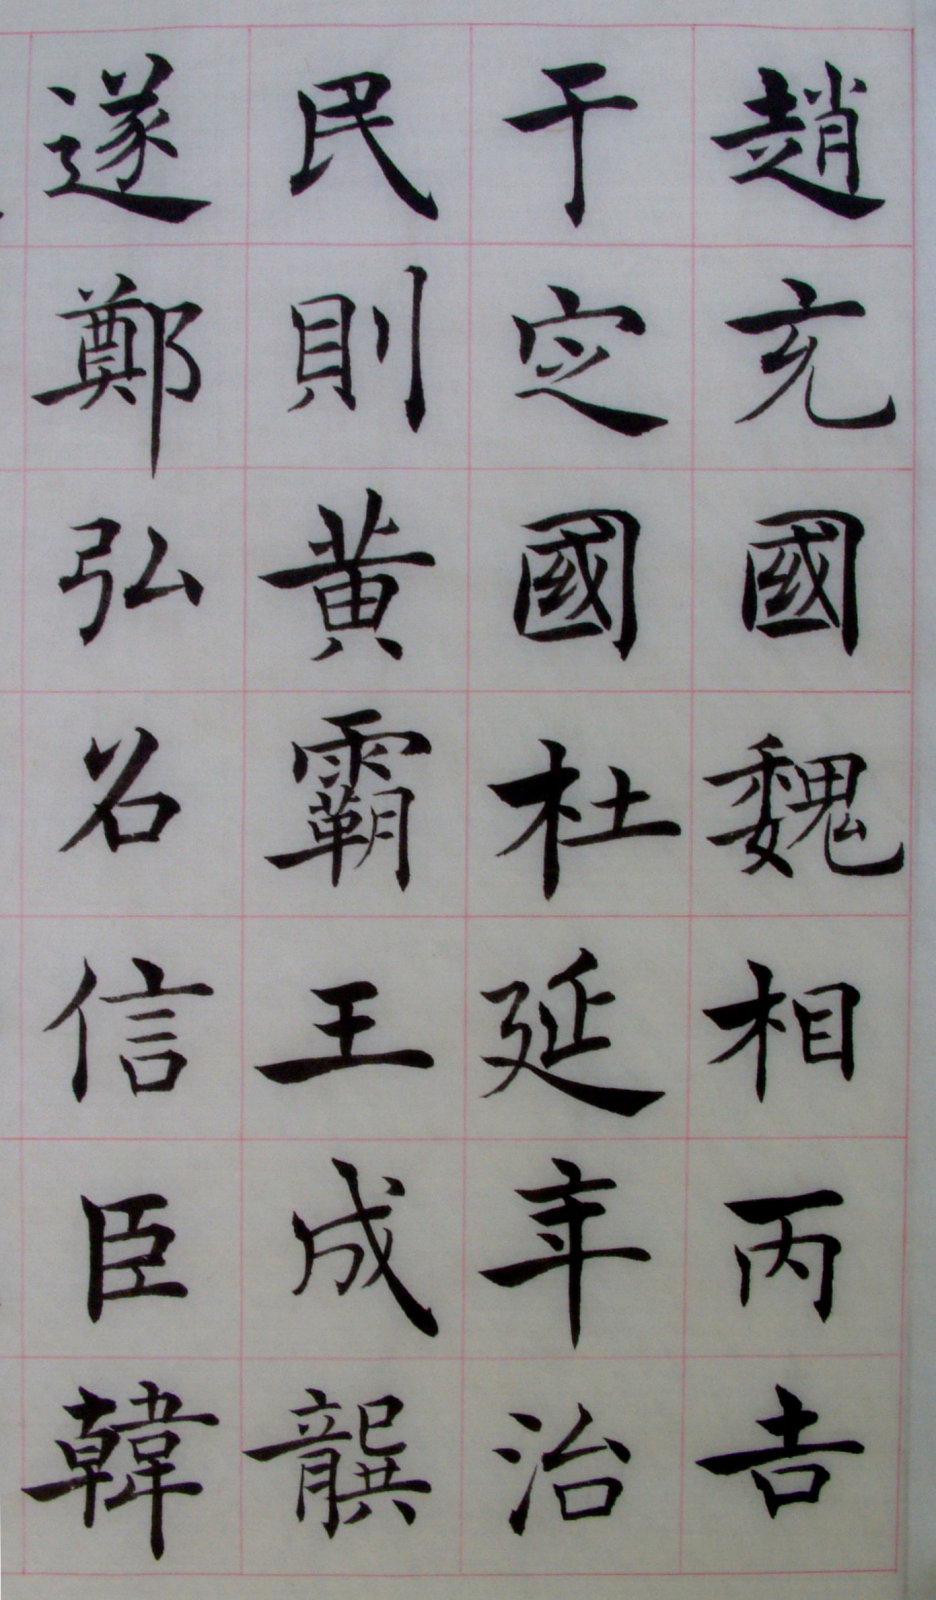 趙充國魏相丙吉
于定國杜延年治
民則黃霸王成龔
遂鄭弘召信臣韓